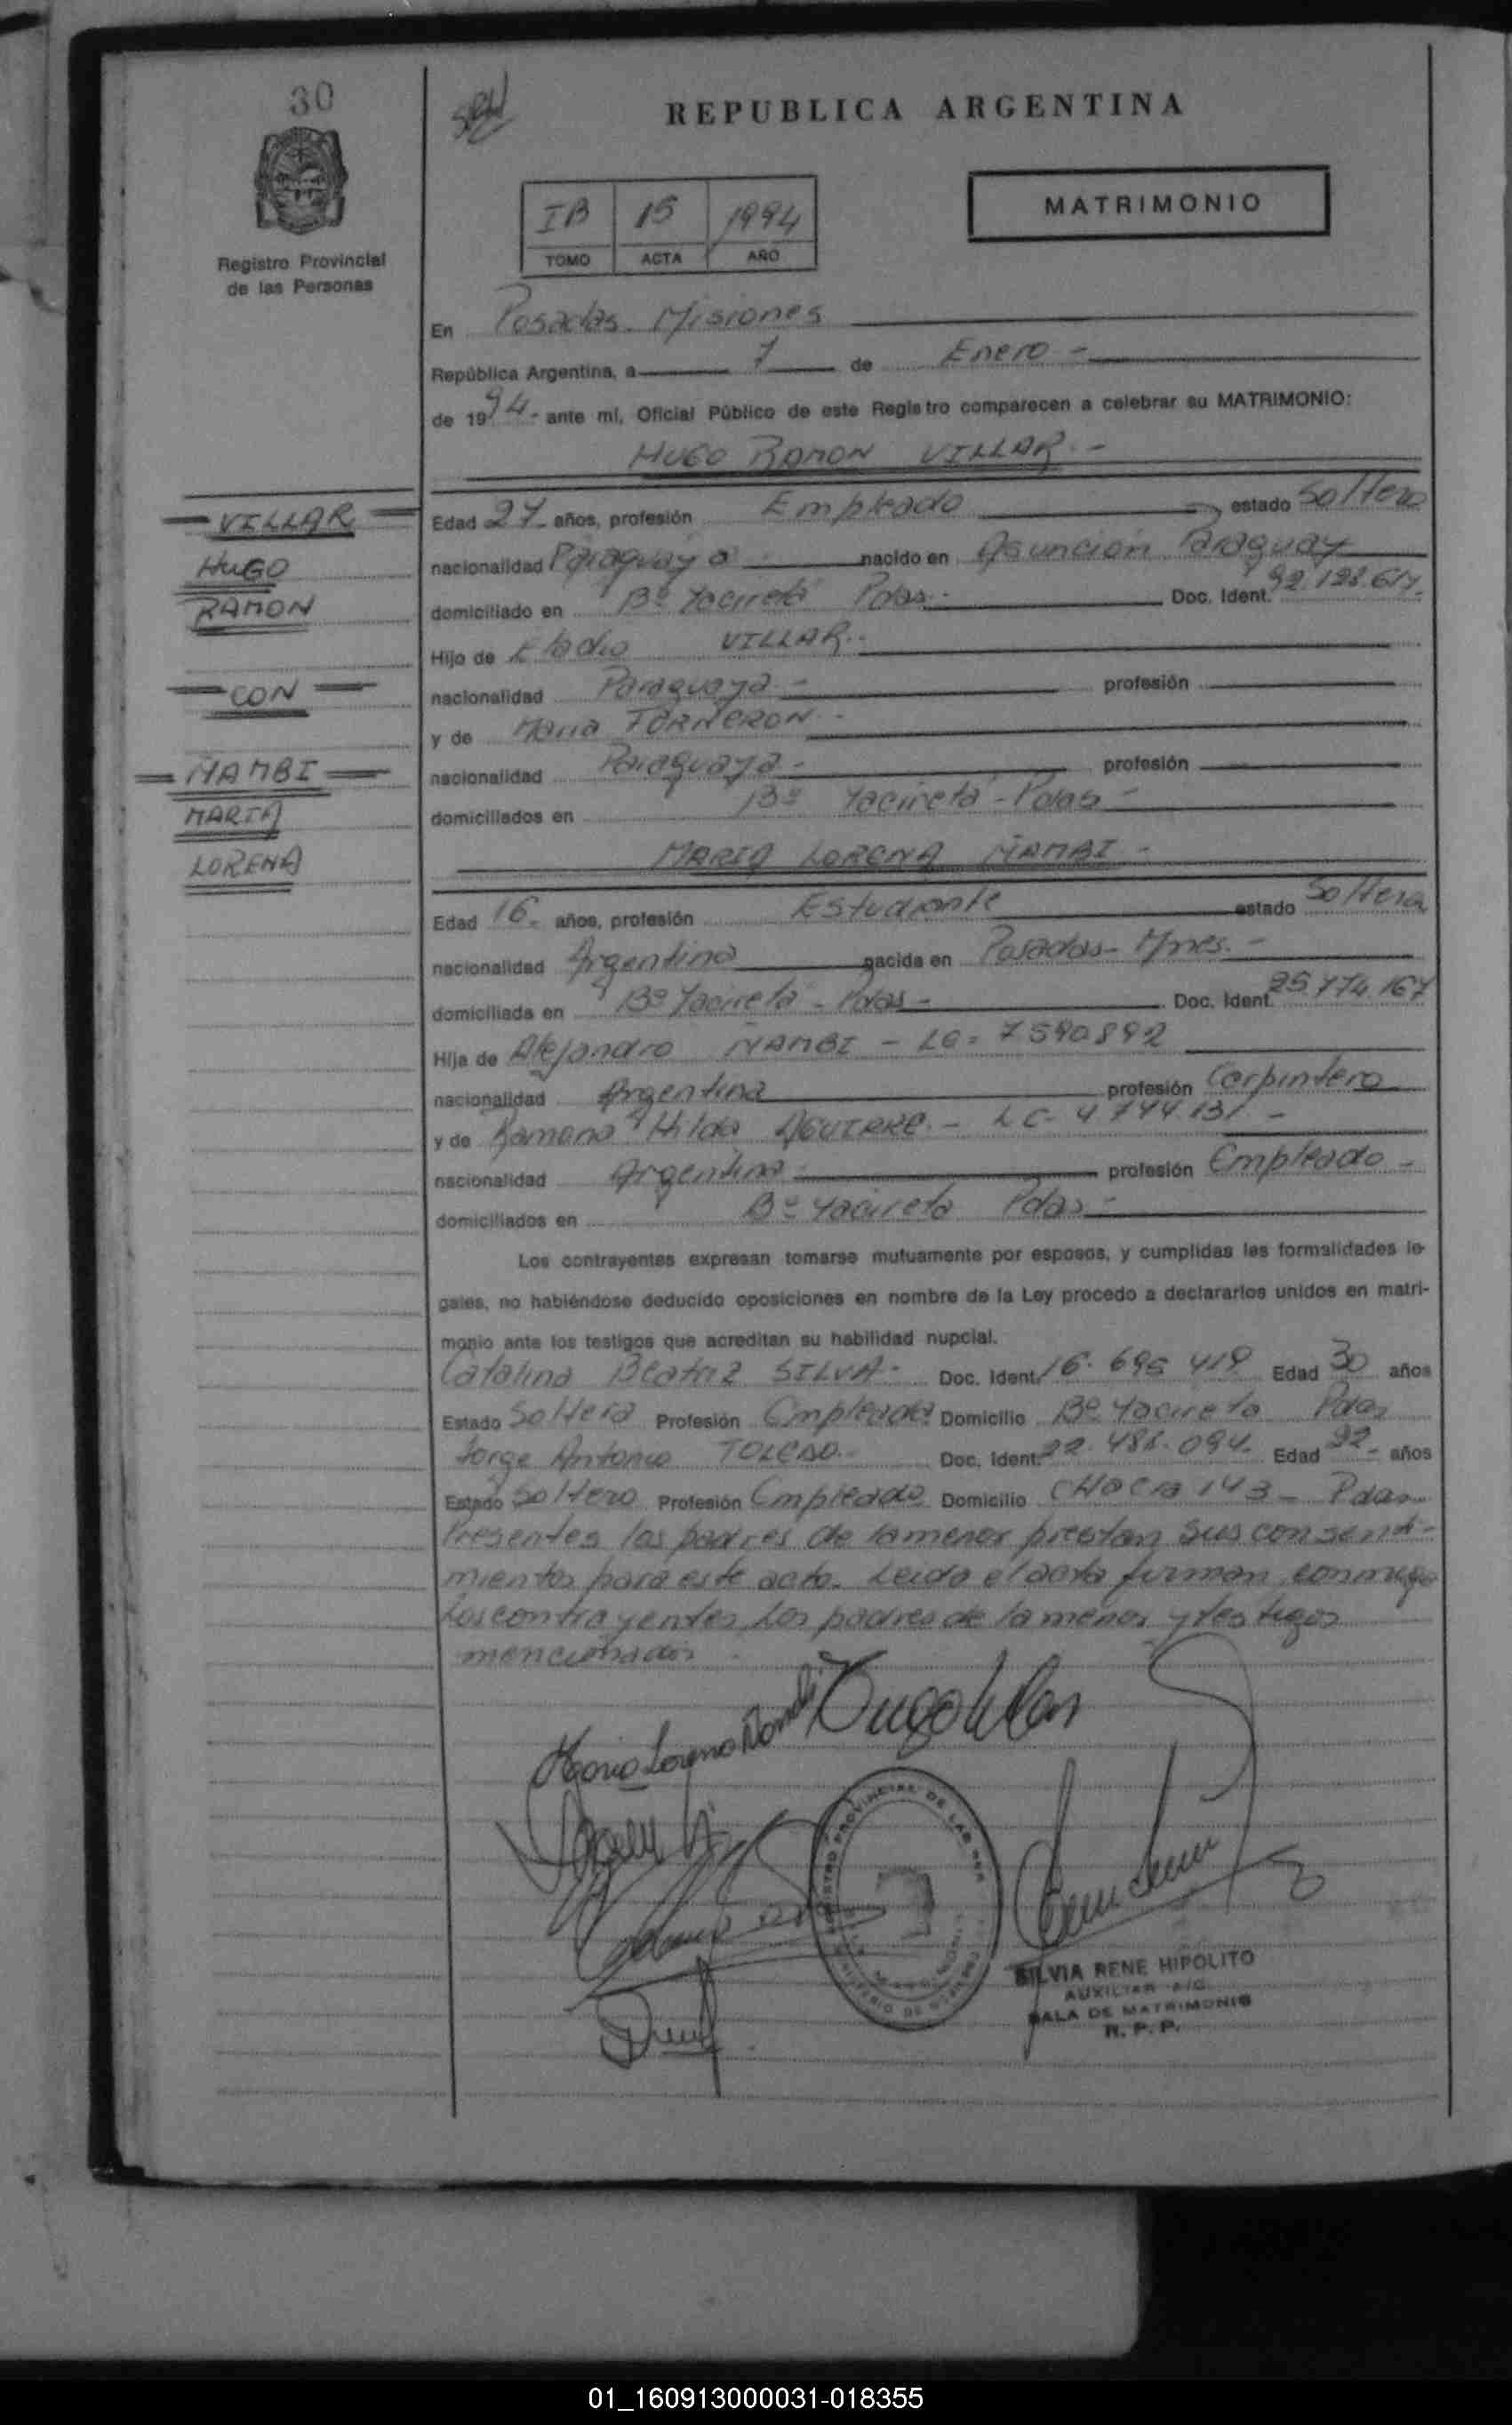 30
REPUBLICA ARGENTINA
IB 15 1994
TOMO ACTA AÑO
MATRIMONIO
Registro Provincial
de las Personas
En Posadas Misiones
República Argentina, a 7 de Enero -
de 1994- ante mí, Oficial Público de este Registro comparecen a celebrar su MATRIMONIO:
HUGO RAMON VILLAR.-
VILLAR
HUGO
RAMON
CON
ÑAMBI
MARIA
LORENA
Edad 27 años, profesión Empleado estado Soltero
nacionalidad Paraguaya nacido en Asunción Paraguay
domiciliado en Bº Yacireta Pdas.- Doc. Ident. 92.128.617.
Hijo de Eladio VILLAR.-
nacionalidad Paraguaya.- profesión
y de Maria FORNERON.-
nacionalidad Paraguaya.- profesión
domiciliados en Bº Yacireta - Pdas -
MARIA LORENA ÑAMBI -
Edad 16- años, profesión Estudiante estado Soltera
nacionalidad Argentina nacida en Posadas - Mnes.-
domiciliada en Bº Yacireta - Pdas - Doc. Ident. 25.774.167
Hija de Alejandro ÑAMBI - LE= 7590892
nacionalidad Argentina profesión Carpintero
y de Ramona Hilda AGUIRRE.- LC- 4.744.131 -
nacionalidad Argentina profesión Empleado -
domiciliados en Bº Yacireta Pdas -
Los contrayentes expresan tomarse mutuamente por esposos, y cumplidas las formalidades le-
gales, no habiéndose deducido oposiciones en nombre de la Ley procedo a declararlos unidos en matri-
monio ante los testigos que acreditan su habilidad nupcial.
Catalina Beatriz SILVA- Doc. Ident. 16.695 419 Edad 30 años
Estado Soltera Profesión Empleada Domicilio Bº Yacireta Pdas
Jorge Antonio TOLEDO.- Doc. Ident. 22.488.094. Edad 22- años
Estado Soltero Profesión Empleado Domicilio CHacra 143 - Pdas
Presentes los padres de la menor prestan sus consenti-
mientos para este acto. Leida el acta firman conmigo
Los contrayentes, los padres de la menor y testigos
mencionados.
Maria Lorena Ñambi Hugo Villar
SILVIA RENE HIPOLITO
AUXILIAR A/C
SALA DE MATRIMONIO
R. P. P.
01_160913000031-018355